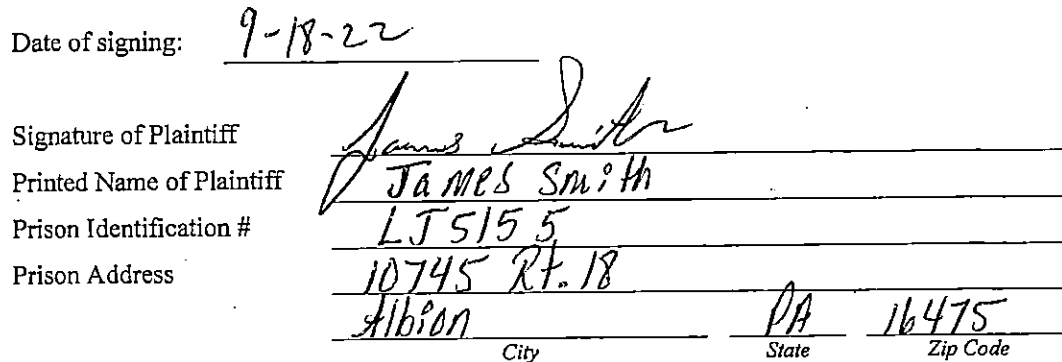 Date of signing: 9-18-22
Signature of Plaintiff James Smith
Printed Name of Plaintiff James Smith
Prison Identification # LJ5155
Prison Address 10745 Rt. 18
Albion PA 16475
City State Zip Code